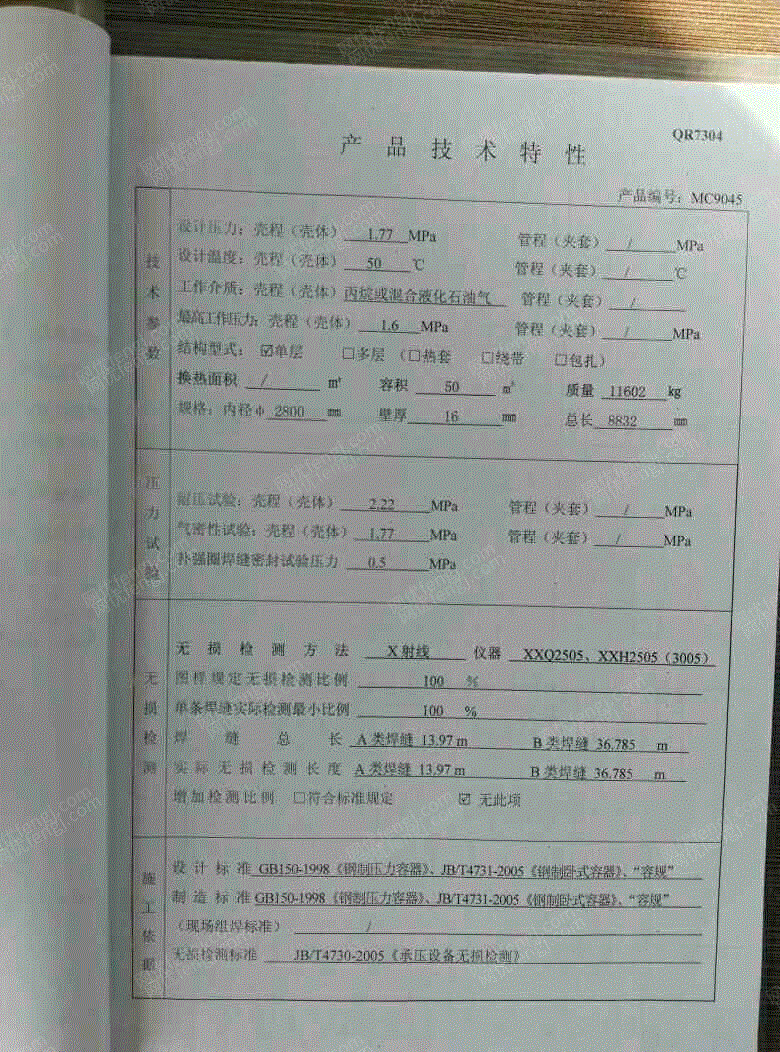 QR7304
产品技术特性
产品编号：MC9045
技术参数
设计压力：壳程（壳体） 1.77 MPa 管程（夹套） / MPa
设计温度：壳程（壳体） 50 ℃ 管程（夹套） / ℃
工作介质：壳程（壳体）丙烷或混合液化石油气 管程（夹套） /
最高工作压力：壳程（壳体） 1.6 MPa 管程（夹套） / MPa
结构型式： ☑单层 □多层（□热套 □绕带 □包扎）
换热面积 / m² 容积 50 m³ 质量 11602 kg
规格：内径φ 2800 mm 壁厚 16 mm 总长 8832 mm
压力试验
耐压试验：壳程（壳体） 2.22 MPa 管程（夹套） / MPa
气密性试验：壳程（壳体） 1.77 MPa 管程（夹套） / MPa
补强圈焊缝密封试验压力 0.5 MPa
无损检测
无损检测方法 X射线 仪器 XXQ2505、XXH2505（3005）
图样规定无损检测比例 100 %
单条焊缝实际检测最小比例 100 %
焊缝总长 A类焊缝 13.97 m B类焊缝 36.785 m
实际无损检测长度 A类焊缝 13.97 m B类焊缝 36.785 m
增加检测比例 □符合标准规定 ☑ 无此项
施工依据
设计标准 GB150-1998《钢制压力容器》、JB/T4731-2005《钢制卧式容器》、“容规”
制造标准 GB150-1998《钢制压力容器》、JB/T4731-2005《钢制卧式容器》、“容规”
（现场组焊标准） /
无损检测标准 JB/T4730-2005《承压设备无损检测》